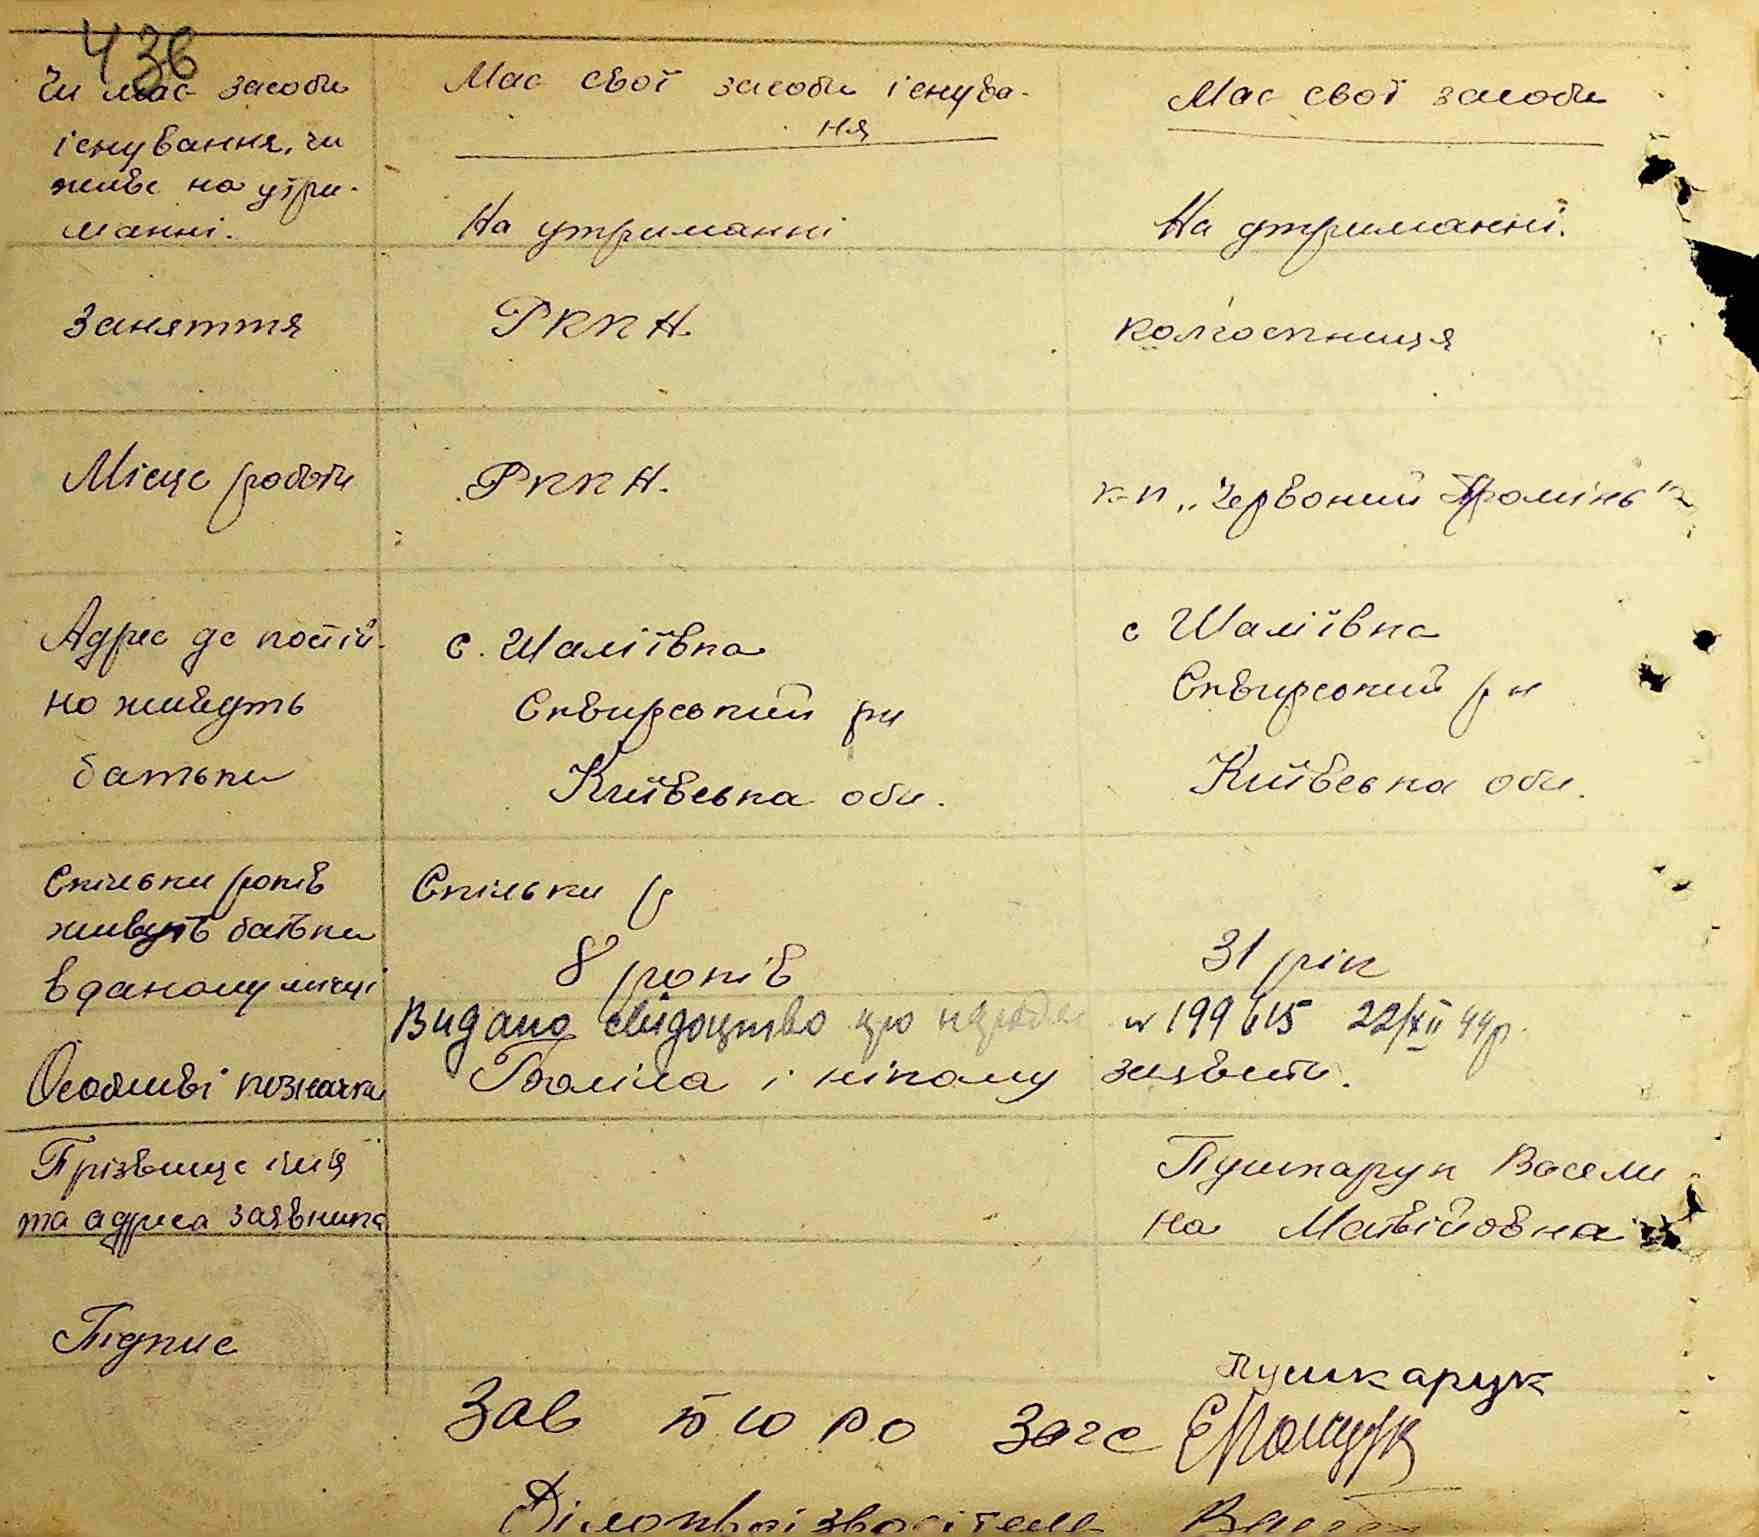 436
Чи має засоби
існування, чи
живе на утри-
манні.
Має свої засоби існува-
ня
На утриманні
Має свої засоби
На утриманні.
Заняття
РККА.
колгоспниця
Місце роботи
РККА.
к-п „Червоний Промінь"
Адрес де постій-
но живуть
батьки
с. Шаліївка
Сквирський рн
Київська обл.
с Шаліївка
Сквирський р н
Київська обл.
Скільки років
живуть батьки
в даному місці
Скільки р
8 років
31 рік
Видано свідоцтво про 199615 22/XII 44р.
Особливі позначки
Боліла і нікому заявити.
Прізвище імя
та адреса заявника
Пушкарук Васели
на Матвійовна
Підпис
Пушкарук
Зав бюро Загс
Діловкоізвосітель